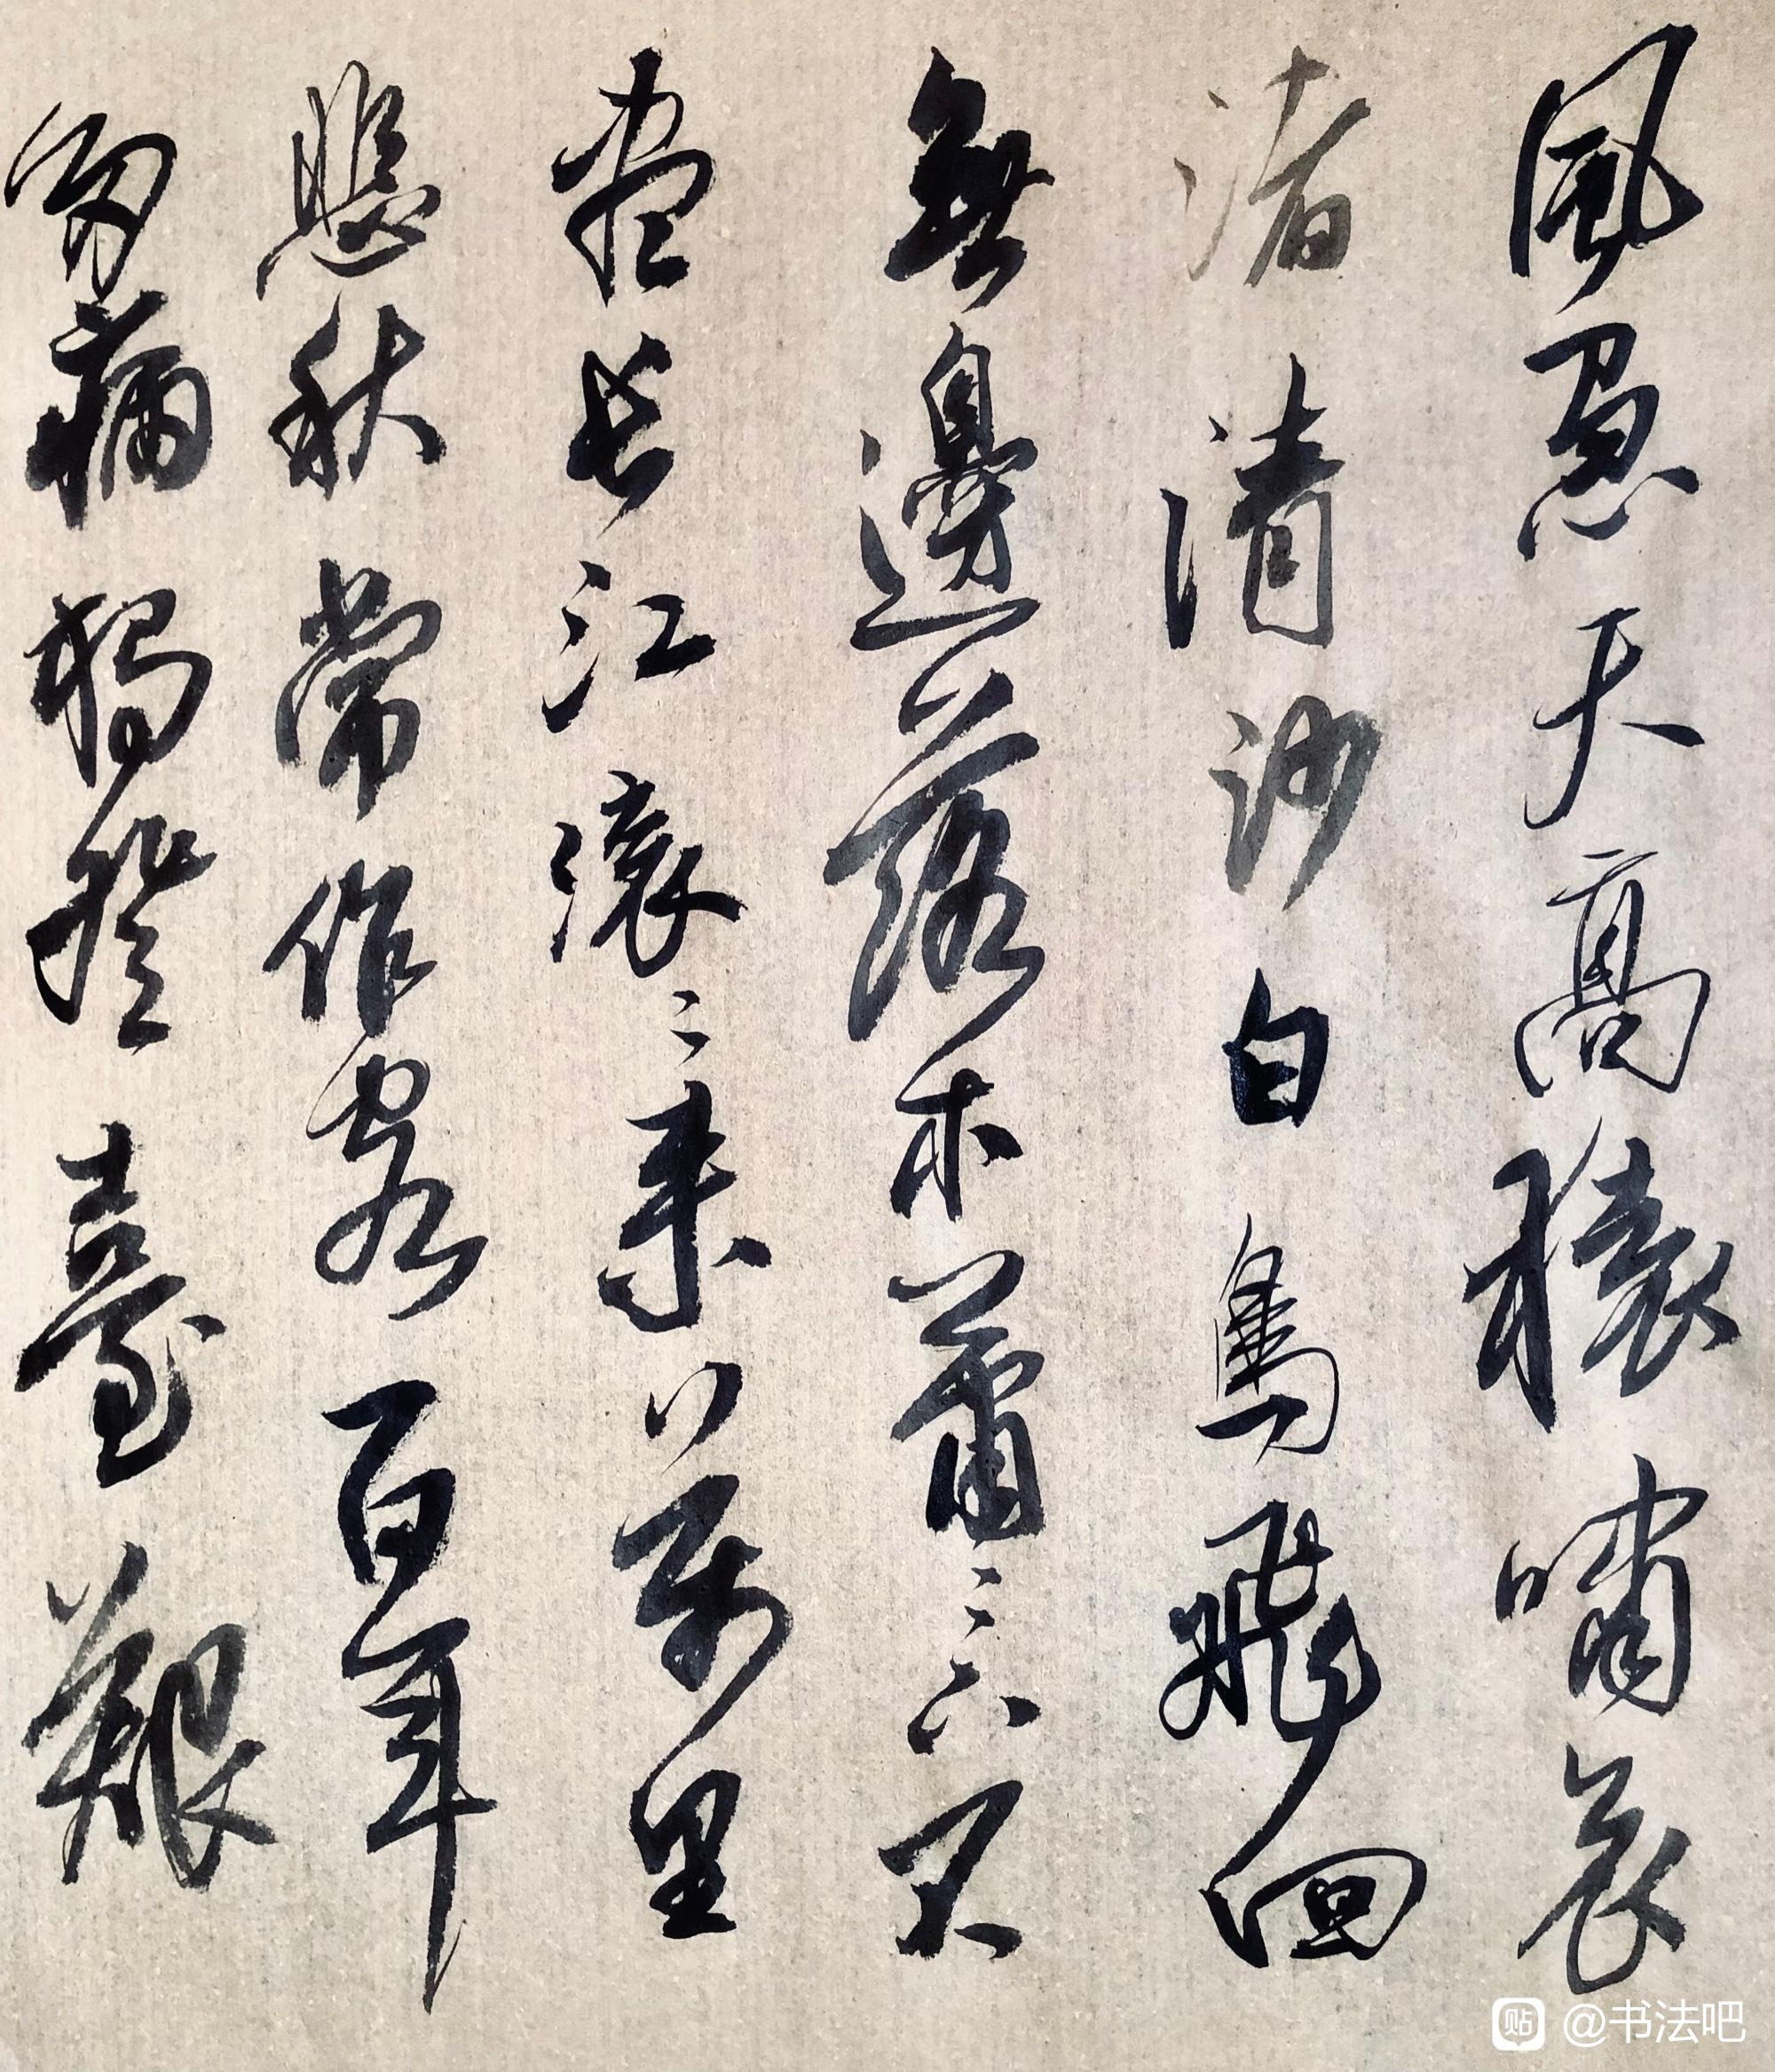 風急天高猿嘯哀
渚清沙白鳥飛洄
無邊落木蕭〻下不
盡長江滚〻来萬里
悲秋常作客百年
多病獨登臺艱
@书法吧